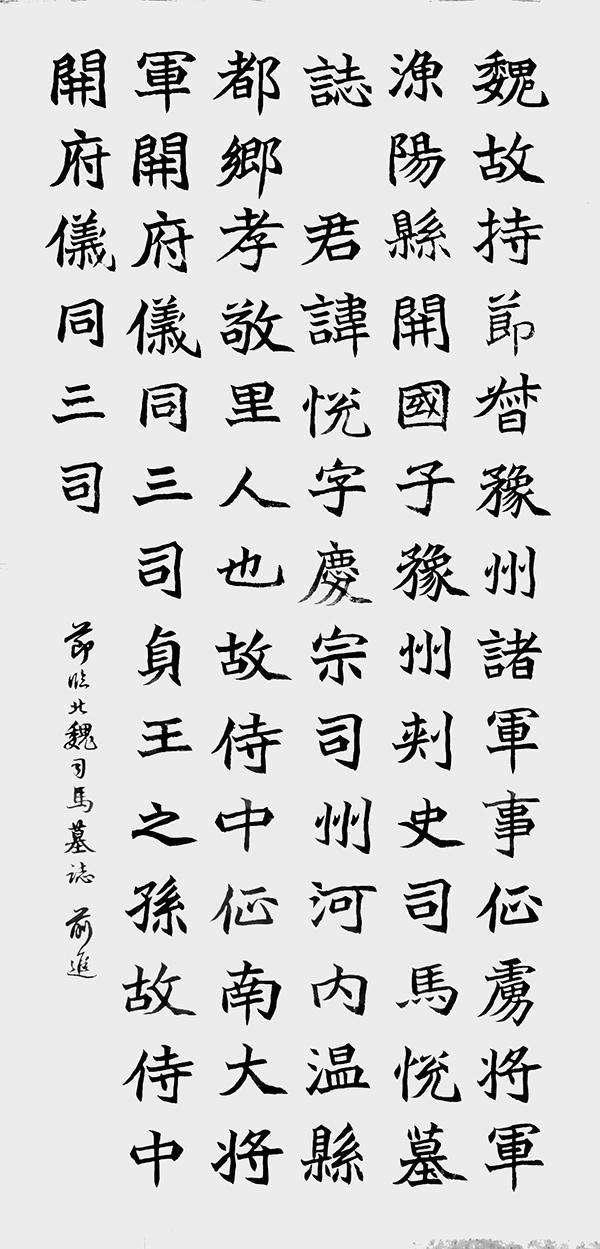 魏故持節督豫州諸軍事征虜將軍
漁陽縣開國子豫州刺史司馬悅墓
誌 君諱悅字慶宗司州河內温縣
都鄉孝敬里人也故侍中征南大将
軍開府儀同三司貞王之孫故侍中
開府儀同三司
節臨北魏司馬墓誌 前進